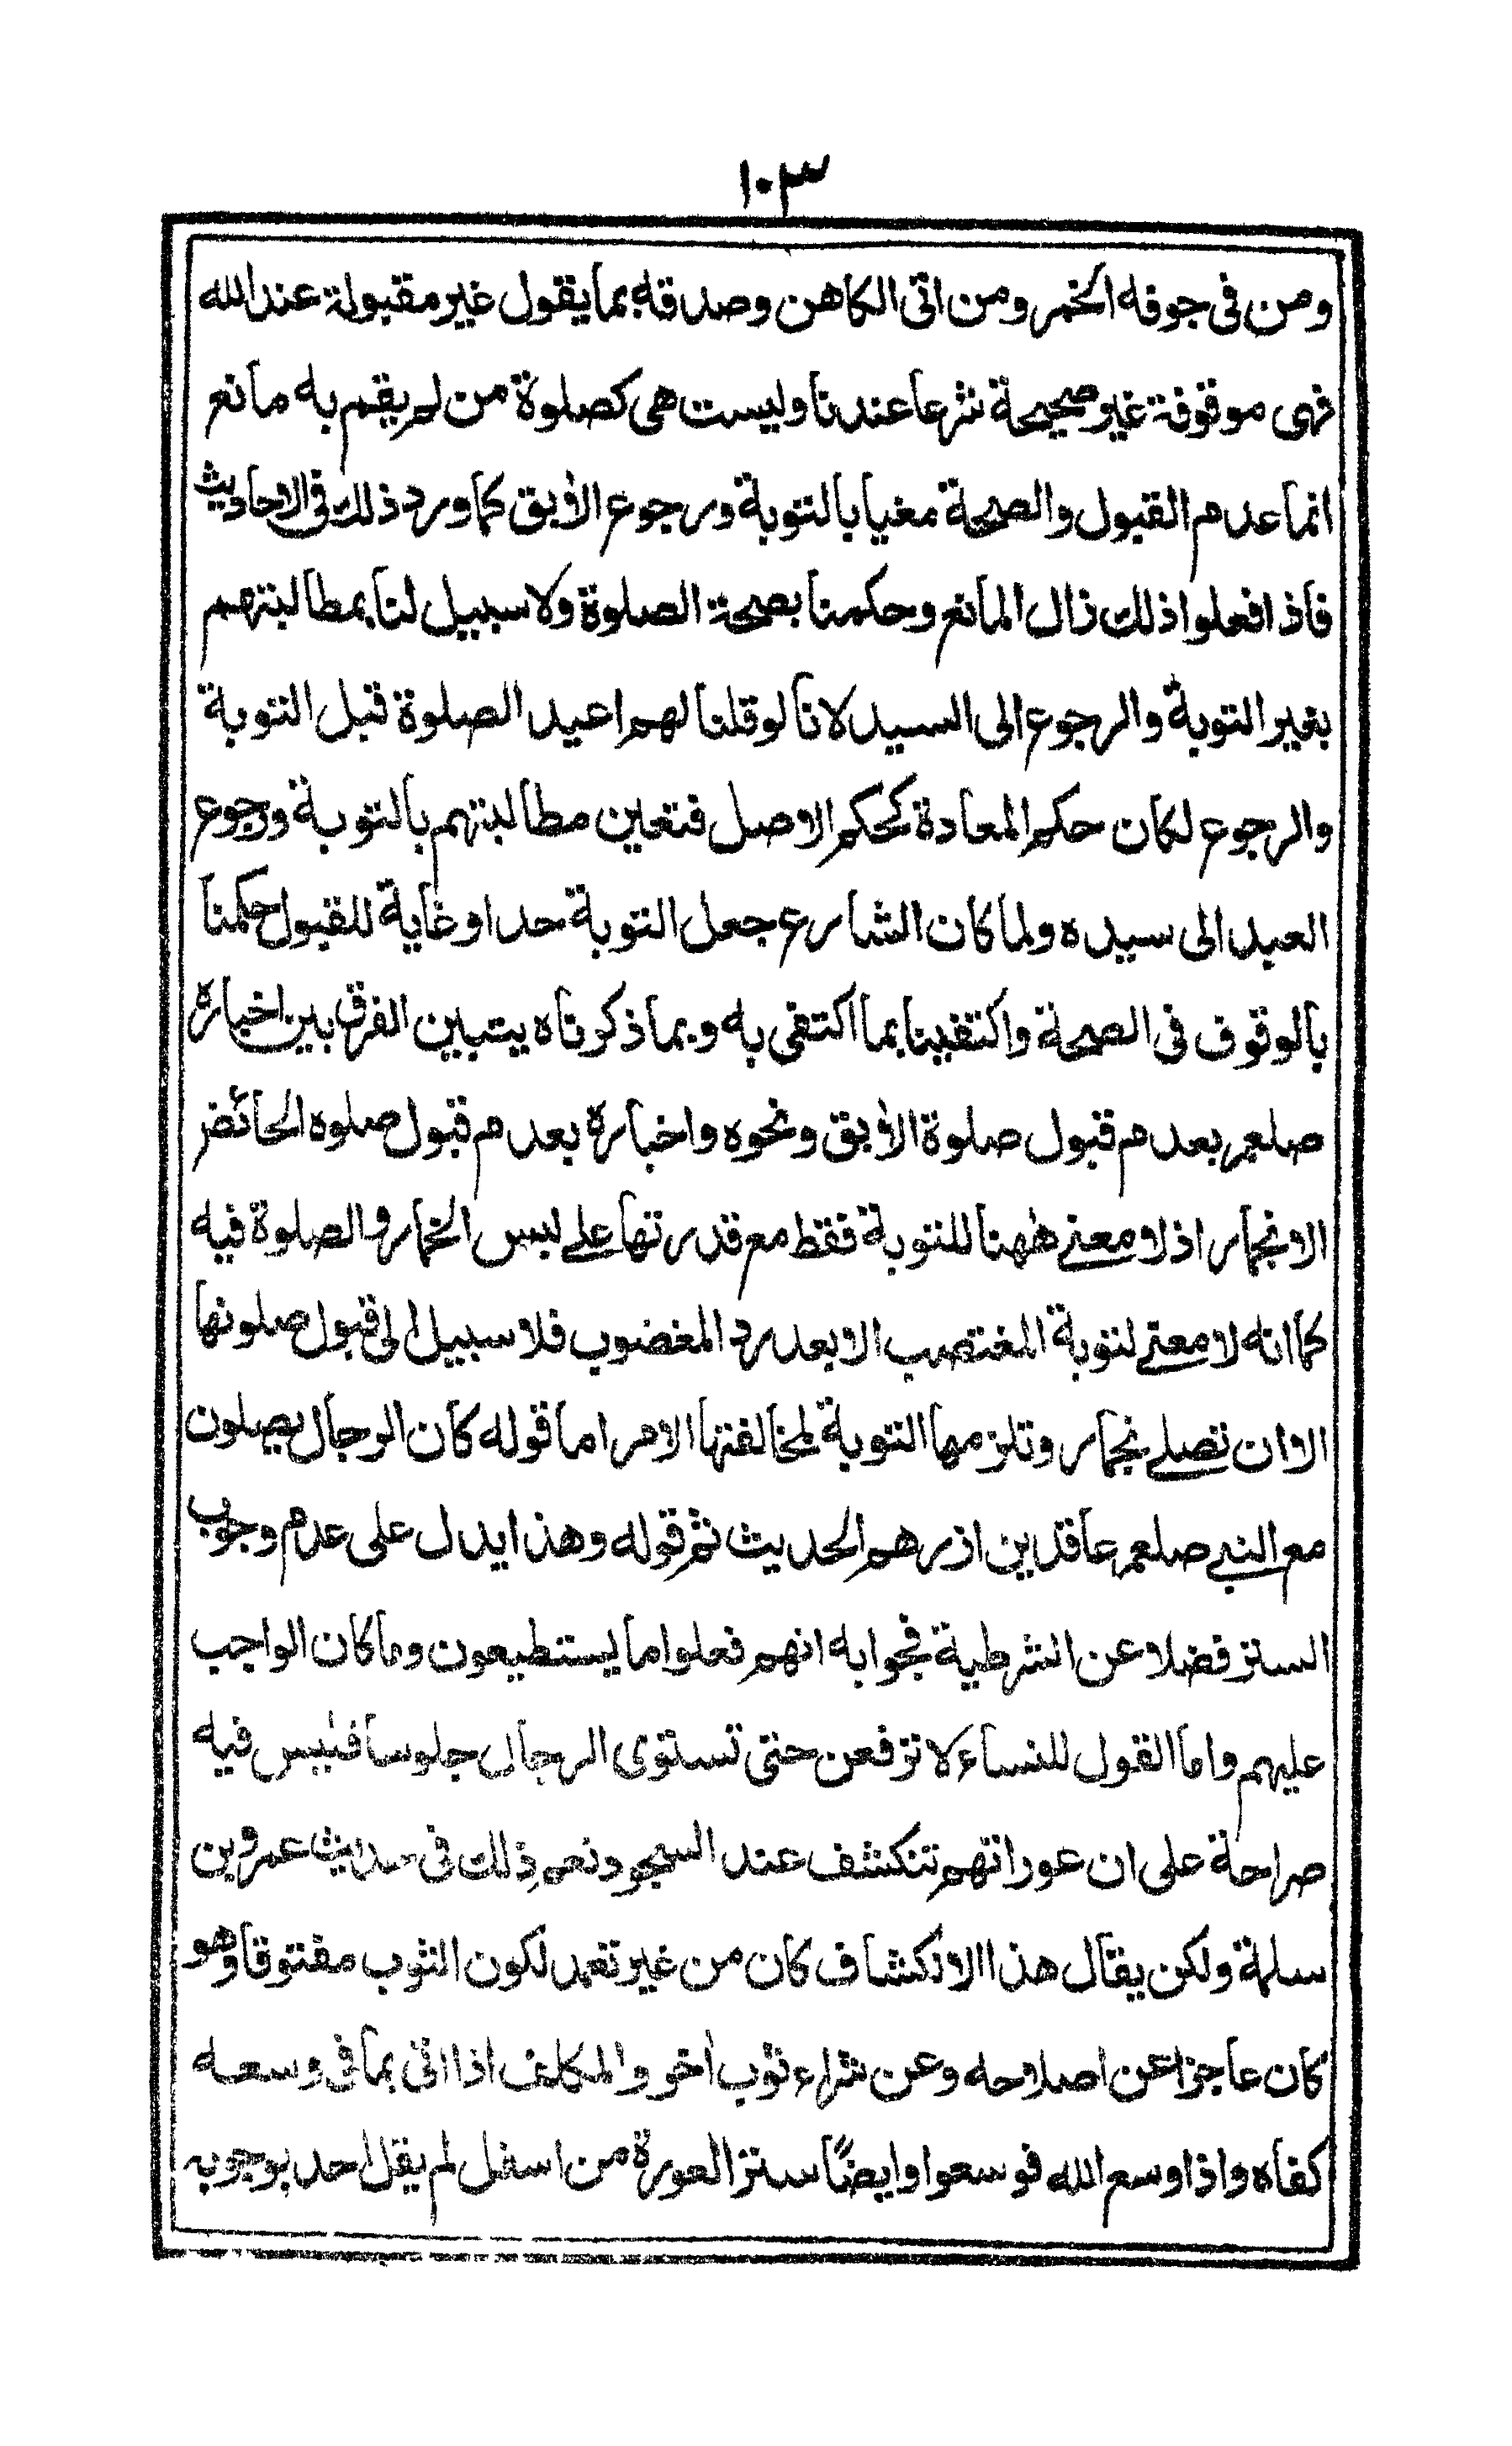 ١٠٣
ومن فى جوفه الخمر ومن اتى الكاهن وصدقه بما يقول غير مقبولة عند الله
فهى موقوفة غير صحيحة شرعا عندنا وليست هى كصلوة من لم يقم به مانع
انما عدم القبول والصحة مغيا بالتوبة ورجوع الأبق كما ورد ذلك فى الاحاديث
فاذا فعلوا ذلك زال المانع وحكمنا بصحة الصلوة ولا سبيل لنا بمطالبتهم
بغير التوبة والرجوع الى السيد لانا لو قلنا لهم اعيد الصلوة قبل التوبة
والرجوع لكان حكم المعادة كحكم الاصل فتعين مطالبتهم بالتوبة ورجوع
العبد الى سيده ولما كان الشارع جعل التوبة حدا وغاية للقبول حكمنا
بالوقوف فى الصحة واكتفينا بما اكتفى به وبما ذكرناه يتبين الفرق بين اخباره
صلعم بعدم قبول صلوة الأبق ونحوه واخباره بعدم قبول صلوه الحائض
الا بخمار اذ لا معنے ههنا للتوبة فقط مع قدرتها علے لبس الخمار والصلوة فيه
كما انه لا معنے لتوبة المغتصب الا بعد رد المغضوب فلا سبيل الى قبول صلوتها
الا ان تصلے بخمار وتلزمها التوبة لمخالفتها الامر اما قوله كان الرجال يصلون
مع النبے صلعم عاقدين ازرهم الحديث ثم قوله وهذا يدل على عدم وجوب
الستر فضلا عن الشرطية فجوابه انهم فعلوا ما يستطيعون وما كان الواجب
عليهم واما القول للنساء لا ترفعن حتى تستوى الرجال جلوسا فليس فيه
صراحة على ان عوراتهم تنكشف عند السجود نعم ذلك فى حديث عمرو بن
سلمة ولكن يقال هذا الانكشاف كان من غير تعمد لكون الثوب مفتوقا وهو
كان عاجزا عن اصلاحه وعن شراء ثوب أخر والمكلف اذا اتى بما فى وسعه
كفاه واذا وسع الله فوسعوا وايضًا ستر العورة من اسفل لم يقل احد بوجوبه